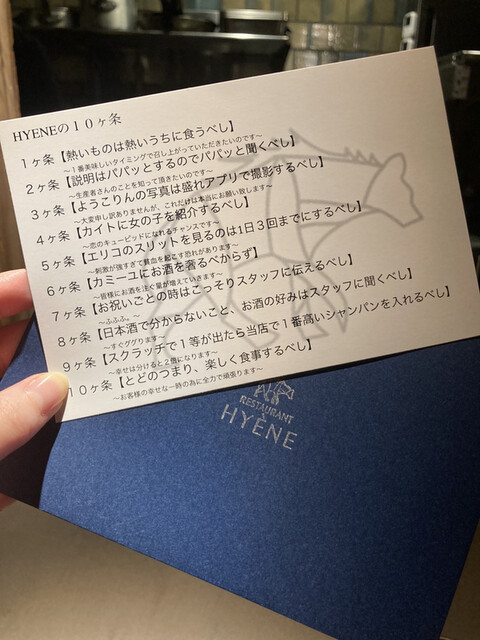 HYENEの10ヶ条
1ヶ条【熱いものは熱いうちに食うべし】
～1番美味しいタイミングで召し上がっていただきたいのです～
2ヶ条【説明はパパッとするのでパパッと聞くべし】
～生産者さんのことを知って頂きたいのです～
3ヶ条【ようこりんの写真は盛れアプリで撮影するべし】
～大変申し訳ありませんが、これだけは本当にお願い致します～
4ヶ条【カイトに女の子を紹介するべし】
～恋のキューピッドになれるチャンスです～
5ヶ条【エリコのスリットを見るのは1日3回までにするべし】
～刺激が強すぎて貧血を起こす恐れがあります～
6ヶ条【カミーユにお酒を奢るべからず】
～皆様にお酒を注ぐ量が増えていきます～
7ヶ条【お祝いごとの時はこっそりスタッフに伝えるべし】
～ふふふ。～
8ヶ条【日本酒で分からないこと、お酒の好みはスタッフに聞くべし】
～すぐググります～
9ヶ条【スクラッチで1等が出たら当店で1番高いシャンパンを入れるべし】
～幸せは分けると2倍になります～
10ヶ条【とどのつまり、楽しく食事するべし】
～お客様の幸せな一時の為に全力で頑張ります～
RESTAURANT
HYÈNE